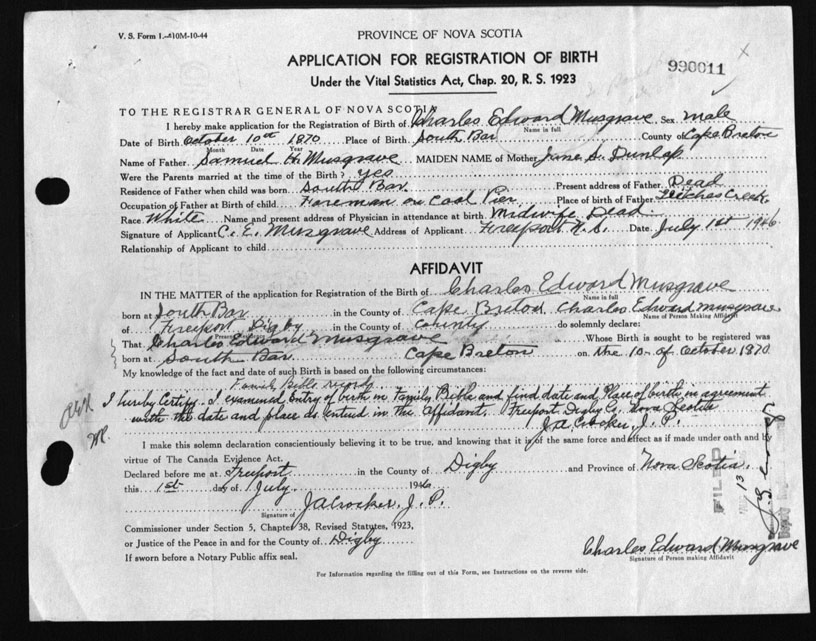 V. S. Form 1.-A10M-10-44
PROVINCE OF NOVA SCOTIA
APPLICATION FOR REGISTRATION OF BIRTH
990011
Under the Vital Statistics Act, Chap. 20, R. S. 1923
TO THE REGISTRAR GENERAL OF NOVA SCOTIA
I hereby make application for the Registration of Birth of Charles Edward Musgrave Sex male
Name in full
Date of Birth October 10th 1870 Place of Birth South Bar County of Cape Breton
Month Date Year
Name of Father Samuel H. Musgrave MAIDEN NAME of Mother Jane S. Dunlap
Were the Parents married at the time of the Birth? yes
Residence of Father when child was born South Bar Present address of Father Dead
Occupation of Father at Birth of child Foreman on Coal Pier Place of birth of Father Leitches Creek
Race White Name and present address of Physician in attendance at birth Midwife Dead
Signature of Applicant C. E. Musgrave Address of Applicant Freeport N. S. Date July 1st 1946
Relationship of Applicant to child
AFFIDAVIT
IN THE MATTER of the application for Registration of the Birth of Charles Edward Musgrave
Name in full
born at South Bar in the County of Cape Breton Charles Edward Musgrave
Name of Person Making Affidavit
of Freeport Digby in the County of County do solemnly declare:
That Charles Edward Musgrave Whose Birth is sought to be registered was
born at South Bar Cape Breton on the 10 of October 1870
My knowledge of the fact and date of Birth is based on the following circumstances:
Family Bible records
I hereby Certify I examined Entry of birth in Family Bible and find date and Place of birth in agreement
with the date and place as entered in the Affidavit. Freeport Digby Co. Nova Scotia
J A Crocker, J. P.
I make this solemn declaration conscientiously believing it to be true, and knowing that it is of the same force and effect as if made under oath and by
virtue of The Canada Evidence Act.
Declared before me at Freeport in the County of Digby and Province of Nova Scotia
this 1st day of July 1946
J A Crocker, J. P.
Signature of
Commissioner under Section 5, Chapter 38, Revised Statutes, 1923,
or Justice of the Peace in and for the County of Digby
If sworn before a Notary Public affix seal.
Charles Edward Musgrave
Signature of Person making Affidavit
For Information regarding the filling out of this Form, see Instructions on the reverse side.
FILED